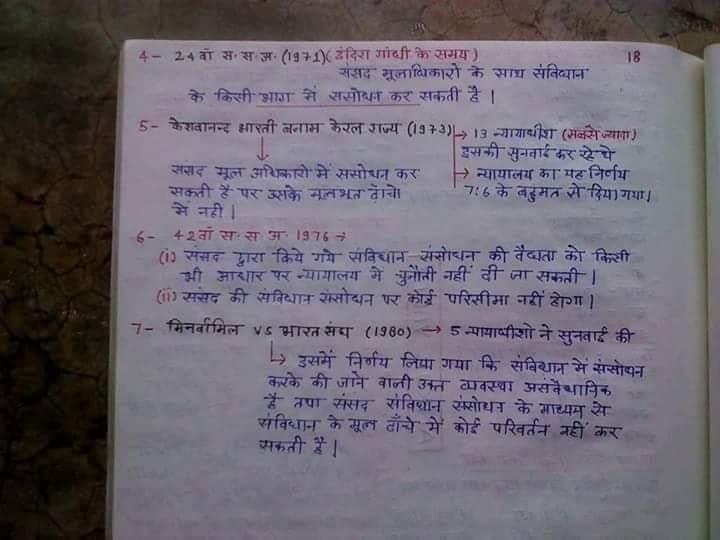 18
4- 24वाँ स.स.अ. (1971) (इंदिरा गाँधी के समय)
संसद मूलाधिकारों के साथ संविधान
के किसी भाग में संसोधन कर सकती है।
5- केशवानन्द भारती बनाम केरल राज्य (1973) → 13 न्यायाधीश (सबसे ज्यादा)
इसकी सुनवाई कर रहे थे
↓
→ न्यायालय का यह निर्णय
7:6 के बहुमत से दिया गया।
संसद मूल अधिकारों में संसोधन कर
सकती है पर उसके मूलभूत ढाँचो
में नही।
6- 42वाँ स.स.अ. 1976 →
(i) संसद द्वारा किये गये संविधान संसोधन की वैद्यता को किसी
भी आधार पर न्यायालय में चुनौती नहीं दी जा सकती।
(ii) संसद की संविधान संसोधन पर कोई परिसीमा नहीं होगा।
7- मिनर्वामिल VS भारत संघ (1980) → 5 न्यायाधीशो ने सुनवाई की
↳ इसमें निर्णय लिया गया कि संविधान में संसोधन
करके की जाने वाली उक्त व्यवस्था असंवैधानिक
है तथा संसद संविधान संसोधन के माध्यम से
संविधान के मूल ढाँचे में कोई परिवर्तन नहीं कर
सकती है।